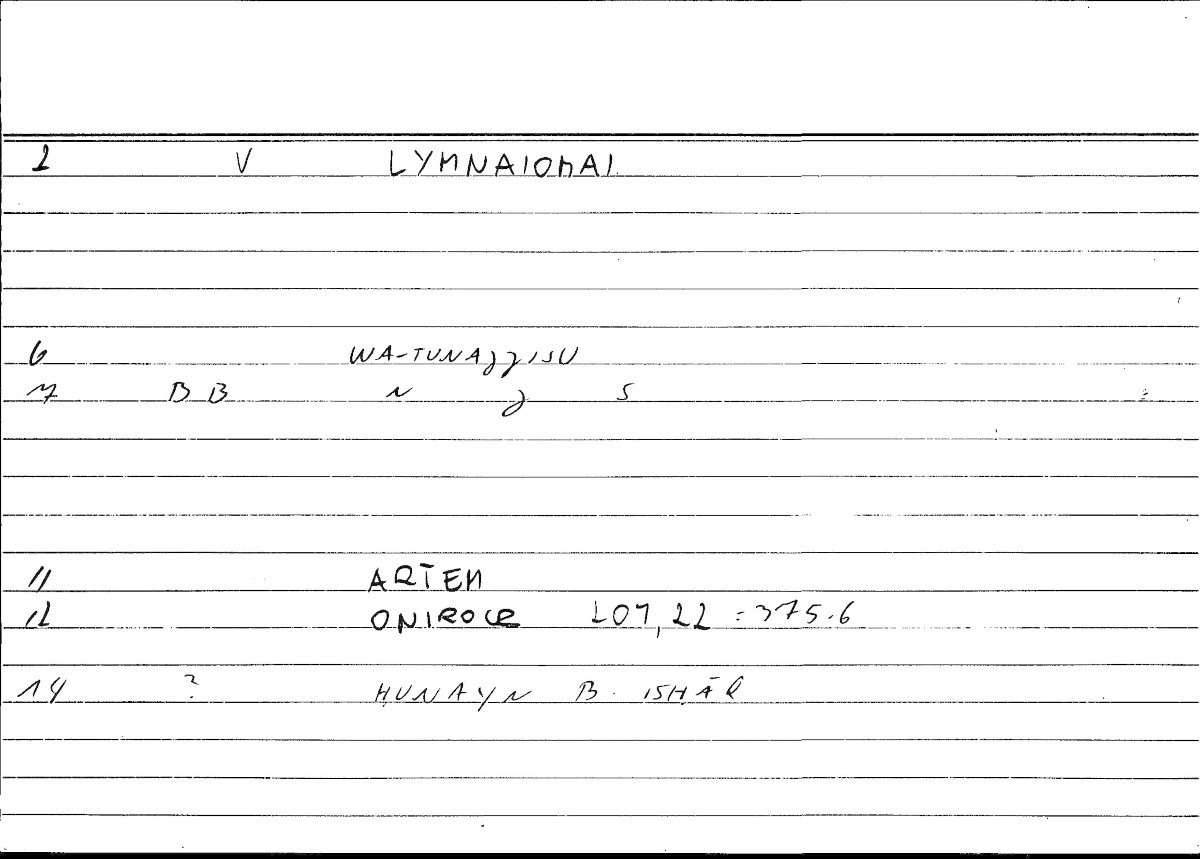 1 V LYMNAIOMAI
6 WA-TUNAggISU
7 BB N g S
11 ARTEM
12 ONIROCR 207,22 = 375.6
14 ? ḤUNAYN B. ISḤĀQ